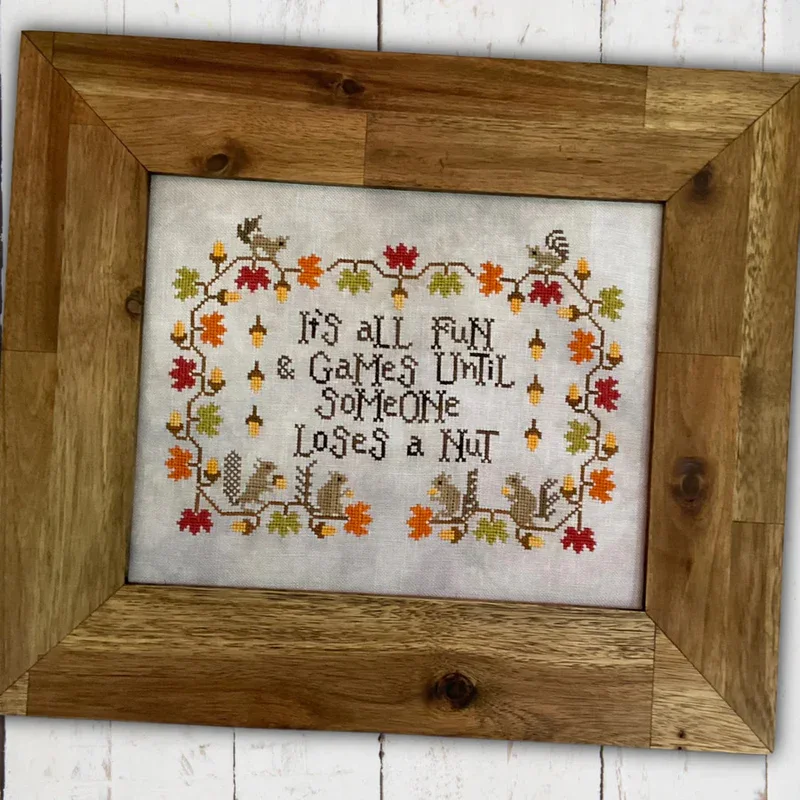 It's all Fun
& Games Until
Someone
Loses a Nut